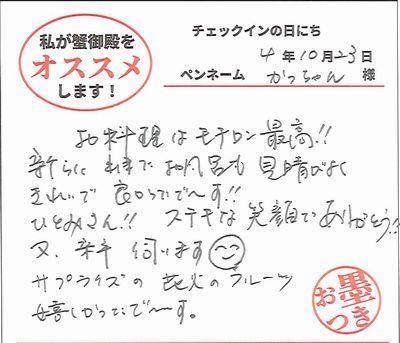 私が蟹御殿を
オススメ
します!
チェックインの日にち
4年10月23日
ペンネーム かっちゃん 様
お料理はモチロン最高!!
新らに お風呂も見晴びよく
きれいで良かったで〜す!!
ひとみさん!! ステキな笑顔でありがとう!!
又、 伺います
サプライズの花火のフルーツ
嬉しかったで〜す。
お墨つき